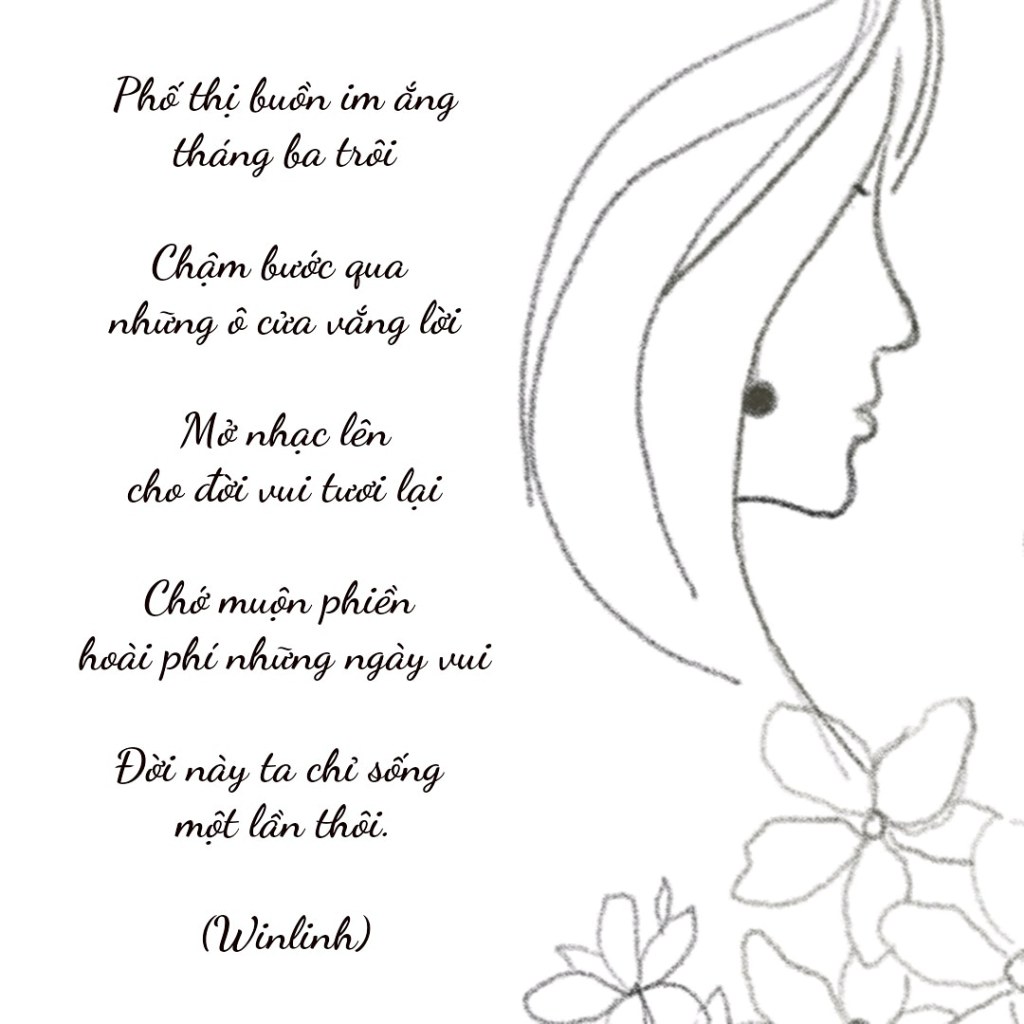 Phố thị buồn im ắng
tháng ba trôi
Chậm bước qua
những ô cửa vắng lời
Mở nhạc lên
cho đời vui tươi lại
Chớ muộn phiền
hoài phí những ngày vui
Đời này ta chỉ sống
một lần thôi.
(Winlinh)